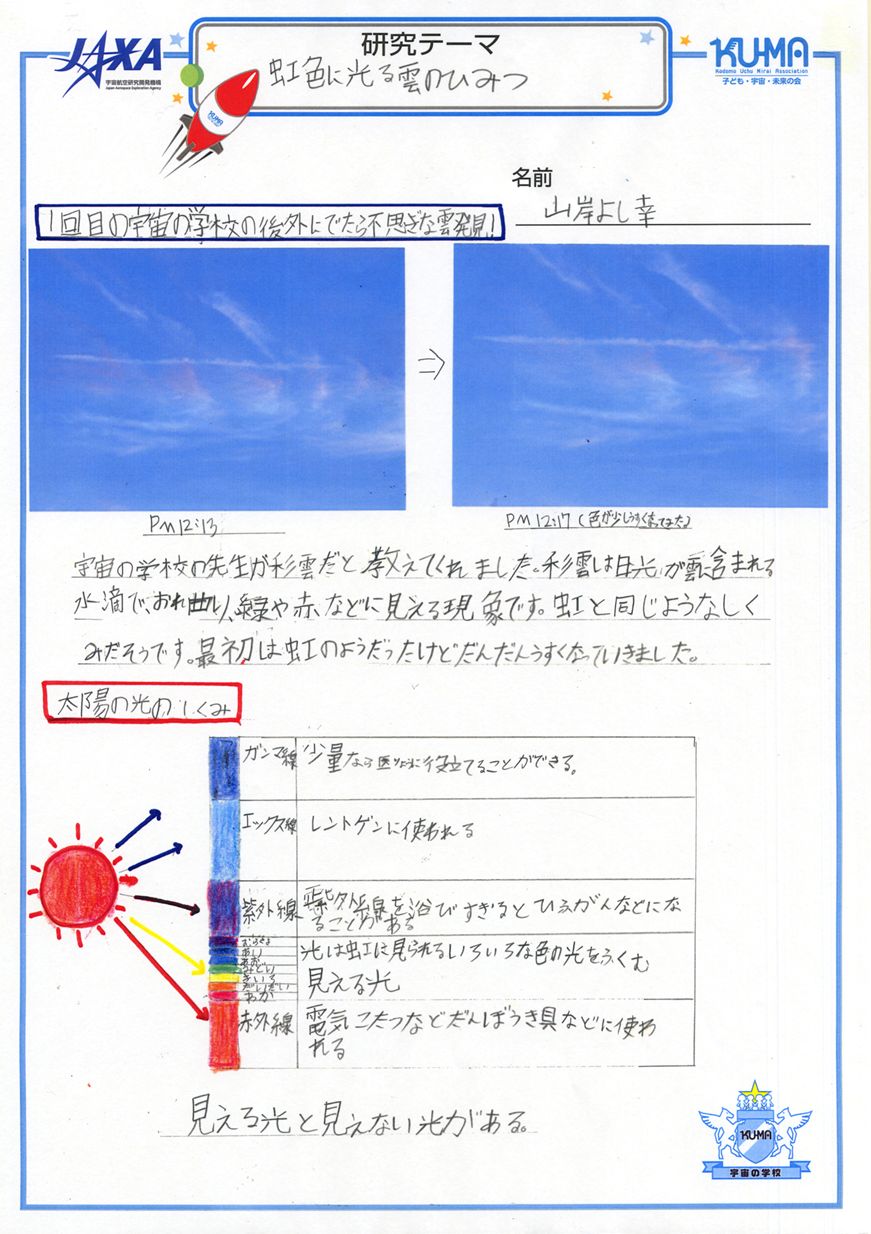 JAXA
宇宙航空研究開発機構
Japan Aerospace Exploration Agency
研究テーマ
虹色に光る雲のひみつ
KU-MA
Kodomo Uchu Mirai Association
子ども・宇宙・未来の会
KU-MA
名前
山岸よし幸
1回目の宇宙の学校の後外にでたら不思ぎな雲発見!
⇒
PM12:13
PM12:17(色が少しうすくなってきた)
宇宙の学校の先生が彩雲だと教えてくれました。彩雲は日光が雲に含まれる
水滴で、おれ曲り、緑や赤などに見える現象です。虹と同じようなしく
みだそうです。最初は虹のようだったけどだんだんうすくなっていきました。
太陽の光のしくみ
ガンマ線 少量なら医りょうに役立てることができる。
エックス線 レントゲンに使われる
紫外線 紫外線を浴びすぎるとひふがんなどにな
ることがある
むらさき
あい
あお
みどり
きいろ
だいだい
あか
光は虹に見られるいろいろな色の光をふくむ
見える光
赤外線 電気こたつなどだんぼうき具などに使わ
れる
見える光と見えない光がある。
KU-MA
宇宙の学校